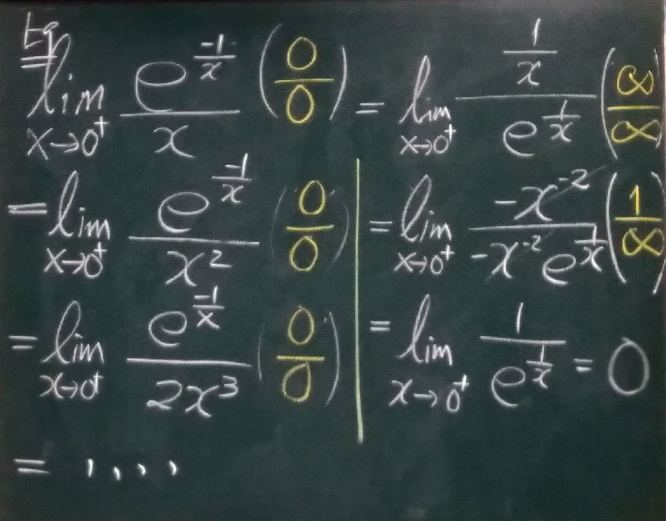 Eg
lim x→0⁺ e^(-1/x) / x (0/0) = lim x→0⁺ (1/x) / e^(1/x) (∞/∞)
= lim x→0⁺ e^(-1/x) / x² (0/0)
= lim x→0⁺ e^(-1/x) / 2x³ (0/0)
= ....
= lim x→0⁺ -x⁻² / -x⁻² e^(1/x) (1/∞)
= lim x→0⁺ 1 / e^(1/x) = 0